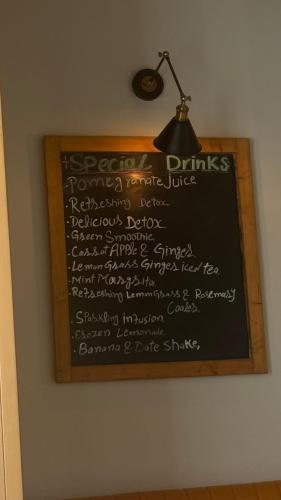 Special Drinks
- Pomegranate Juice
- Refreshing Detox
- Delicious Detox
- Green Smoothie
- Carrot Apple & Ginger
- Lemon Grass Ginger iced tea
- Mint Margarita
- Refreshing Lemmgrass & Rosemary
Cooler
- Sparkling infusion
- Frozen Lemonade
- Banana & Date Shake,